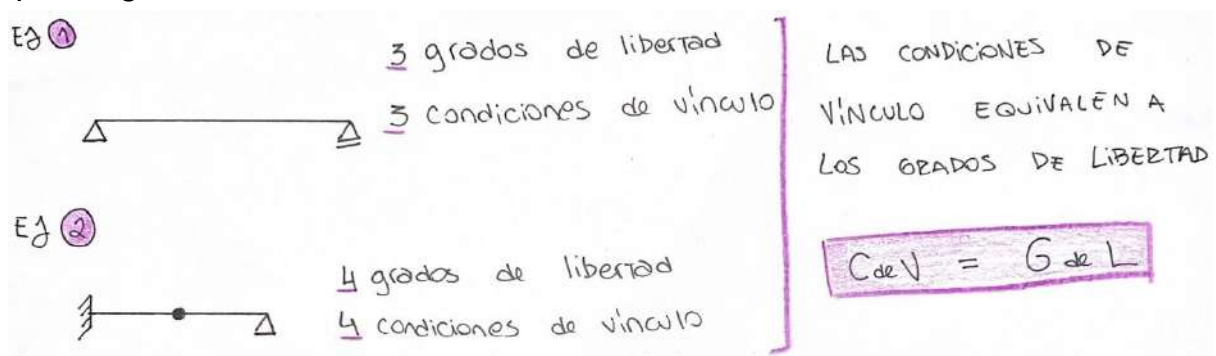 EJ 1
3 grados de libertad
3 condiciones de vínculo
EJ 2
4 grados de libertad
4 condiciones de vinculo
LAS CONDICIONES DE
VÍNCULO EQUIVALEN A
LOS GRADOS DE LIBERTAD
C de V = G de L